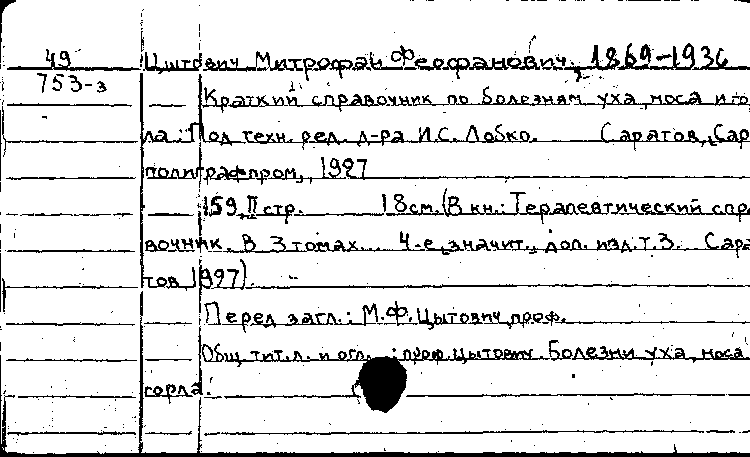 49 Цытович Митрофан Феофанович, 1869-1936
753-з
Краткий справочник по болезням уха, носа и го
ла: Под техн. ред. д-ра И.С. Лобко. Саратов, Сар
полиграфпром, 1927
159, II стр. 18см. (В кн.: Терапевтический спра
вочник. В 3 томах... 4-е, значит. доп. изд. т.3. Сара
тов 1927).
Перед загл.: М.Ф. Цытович, проф.
Общ. тит. л. и огл. : проф. Цытович. Болезни уха, носа
горла.